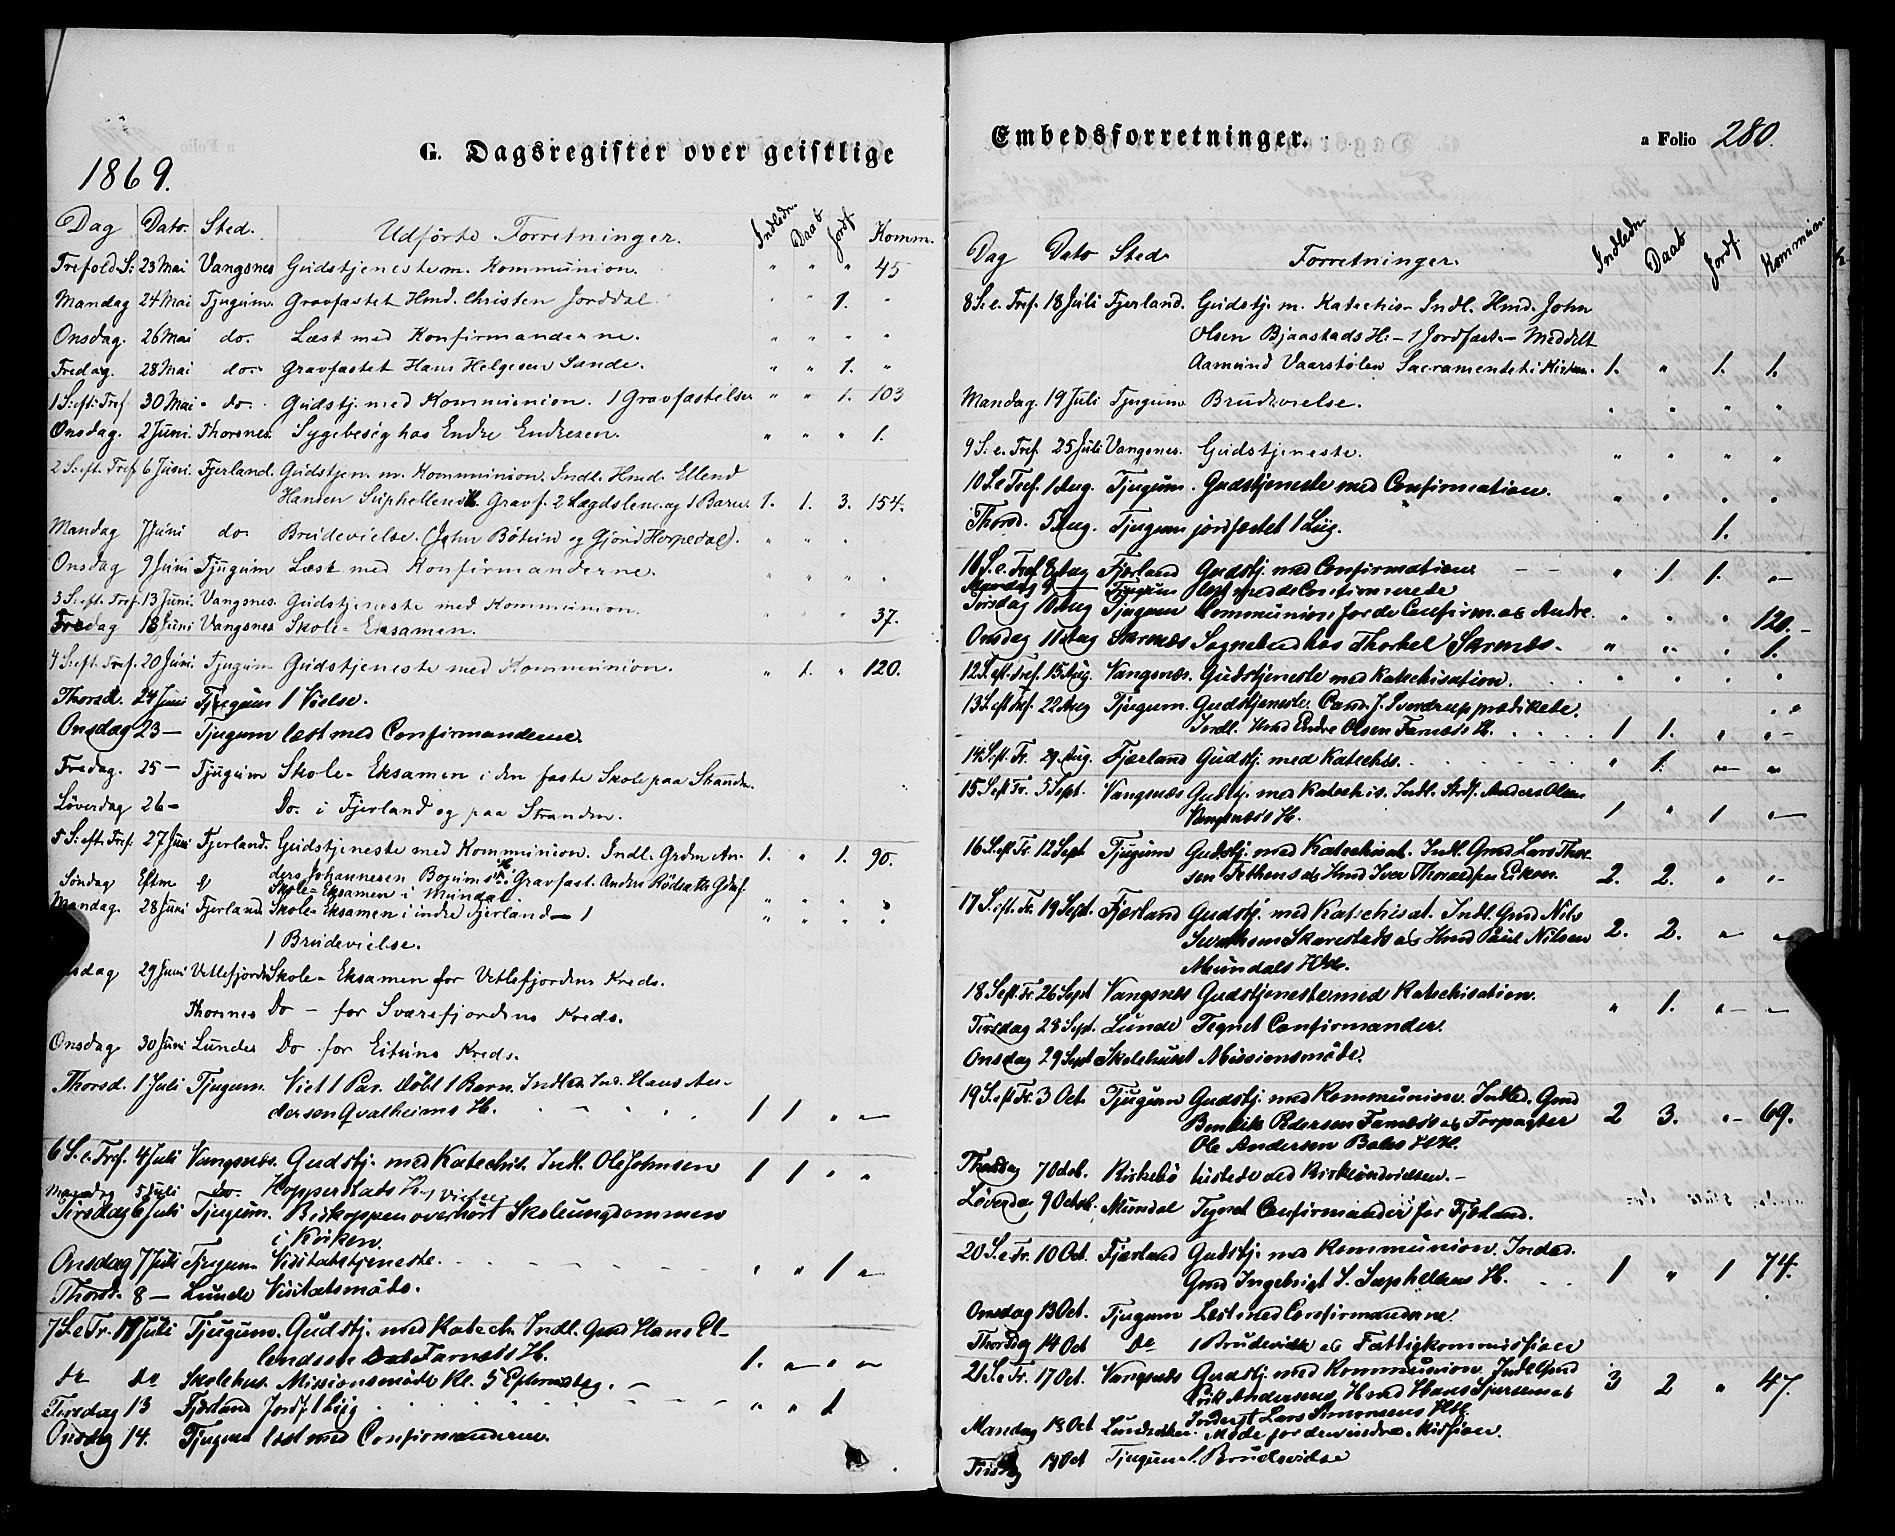 1869.
G. Dagsregister over geistlige
Dag Dato. Sted. Udførte Forretninger. Indledn. Daab Jordf. Komm.
Trefold.S: 23 Mai Vangsnes Gudstjeneste m. Kommunion. " " " 45
Mandag 24 Mai Tjugum. Gravfæstet Hmd. Christen Jorddal. " " 1. "
Onsdag. 26 Mai do. Læst med Konfirmanderne. " " " "
Fredag. 28 Mai do. Gravfæstet Hans Helgesen Sunde. " " 1. "
1 S: eft: Tref. 30 Mai do. Gudstj. med Kommunion. 1 Gravfæstelse " " 1. 103
Onsdag. 2 Juni. Thorsnes. Sygebesøg hos Endre Endresen. " " " 1.
2 S: eft. Tref. 6 Juni. Fjerland. Gudstjen. m. Kommunion. Indl. Hmd. Ellend
Hansen Suphellens H. Gravf. 2 Lægdslem. og 1 Barn. 1. 1. 3. 154.
Mandag 7 Juni do. Brudevielse. (John Bøtun og Gjørid Horpedal). " " "
Onsdag 9 Juni Tjugum Læst med Konfirmanderne. " " " "
3 S: eft: Tref. 13 Juni. Vangsnes. Gudstjeneste med Kommunion. 37.
Fredag 18 Juni Vangsnes Skole-Eksamen.
4 S: eft: Tref. 20 Juni. Tjugum Gudstjeneste med Kommunion. " 1. " 120.
Thorsd. 24 Juni Tjugum 1 Vielse.
Onsdag 23 — Tjugum læst med Confirmanderne.
Fredag. 25 — Tjugum Skole-Eksamen i den faste Skole paa Stranden.
Løverdag 26 — Do. i Fjerland og paa Stranden.
5 S: eft: Tref. 27 Juni Fjerland. Gudstjeneste med Kommunion. Indl. Grdm An- 1. " 1. 90.
ders Johannesen Bojums H. Gravfæst. Anders Rødsæter Gdmf.
Søndag Eftm Skole-Eksamen i Mundal. " " " "
Mandag. 28 Juni Fjerland Skole-Eksamen i indre Fjerland — 1 " " " "
1 Brudevielse.
29 Juni Vetlefjorden Skole-Eksamen for Vetlefjordens Kreds.
Thorsnes Do — for Sværefjordens Kreds.
Onsdag 30 Juni Lunde Do for Eituns Kreds.
Thorsd. 1 Juli Tjugum. Viet 1 Par. Døbt 1 Barn. Indled. Hans An-
dersen Qvalheims H. 1 1 " "
6 S. e. Tref. 4 Juli Vangsnes. Gudstj. med Katechis. Indl. Ole Johnsen 1 1 " "
Hopperstads H.
Mandag 5 Juli do. 1 Vielse
Tirsdag 6 Juli Tjugum. Biskoppen overhørt Skoleungdommen
i Kirken.
Onsdag 7 Juli Tjugum Visitatstjeneste. " " 1 "
Thorsd. 8 — Lunde Visitatsmøde.
7 S. e Tr. 11 Juli Tjugum. Gudstj. med Katech. Indl. Gmd Hans El-
lendsen Farnæs H. 1. " " "
do do Skolehus. Missionsmøde Kl. 5 Eftermdag. —
Tirsdag 13 Fjerland Jordf. 1 Liig " " 1
Onsdag 14. Tjugum læst med Confirmanderne.
Embedsforretninger.
a Folio 280.
Dag Dato Sted. Forretninger. Indledn. Daab Jordf. Kommun.
8 S. e. Tref. 18 Juli Fjerland. Gudstj. m. Katechis. Indl. Hmd. John
Olsen Bjaastads H: — 1 Jordfæst. — Meddelt
Aamund Vaarstølen Sacramentet i Kirken. 1. " 1. 1.
Mandag. 19 Juli Tjugum Brudevielse. " " " "
9 S. e. Tref. 25 Juli Vangsnes. Gudstjeneste. " " " "
10 S. e Tref. 1 Aug. Tjugum. Gudstjeneste med Confirmation. " " " "
Thorsd. 5 Aug. Tjugum jordfæstet 1 Liig. 1.
11 S. e. Tref. 8 Aug Fjærland Gudstj. med Confirmation " 1. 1. "
Mandag 9 Tjugum Læst med de Confirmerede
Tirsdag 10 Aug Tjugum Communion for de Confirm. og Andre. " " " 120.
Onsdag 11 Aug Skrenæs Sognebud hos Thorkel Skrenæs. " " " 1.
12 S. eft. Tref. 15 Aug. Vangsnæs. Gudstjeneste med Katechisation. " " " "
13 S. eft Tref. 22 Aug Tjugum. Gudstjeneste. Cand. J. Sverdrup prædikede.
Indl. Hmd Endre Olsen Farnæs's H. 1 1. " "
14 S. eft. Tr. 29 Aug. Fjærland Gudstj. med Katechis. " 1. " "
15 S. eft Tr. 5 Sept. Vangsnæs Gudstj. med Katechis. Indl. Strdf. Anders Olsen
Vangsnæs's H. 1 " 1 "
16 S. eft Tr. 12 Sept Tjugum Gudstj. med Katechisat. Indl. Gmd Lars Thor-
sen Fethens og Hmd Iver Thorsen Eikens. 2. 2. " "
17 S. eft. Tr. 19 Sept. Fjærland Gudstj. med Katechisat. Indl. Gmd Nils
Skarestads og Hmd Paul Nilsen 2. 2. " "
Mundals HH.
18 S. eft. Tr. 26 Sept Vangsnes Gudstjeneste med Katechisation. " 1. " "
Tirsdag 28 Sept. Lunde Tegnet Confirmander.
Onsdag 29 Sept Skolehuset Missionsmøde.
19 S. eft Tr. 3 Oct. Tjugum Gudstj. med Kommunion. Indled. Gmd 2 3. " 69.
Bendik Pedersen Farnæs og Forpagter
Ole Andersen Bales HH.
Thorsdag 7 Octob. Kirkebø tilstede ved Kirkeindvielsen. —
Løverdag 9 Octob. Mundal Tegnet Confirmander for Fjærland.
20 S. e Tr. 10 Oct. Fjærland Gudstj. med Kommunion. Indled.
Gmd Ingebrigt S. Suphellens H. 1 " 1 74.
Onsdag 13 Oct. Tjugum Læst med Confirmanderne
Thorsdag 14 Oct do 1 Brudevielse og Fattigkommission
21 S. e Tr. 17 Oct. Vangsnæs Gudstj. med Kommunion. Indl. Gmd 3 2 " 47.
Erik Andersens, Hmd Hans og
Inderst Lars Simonsens HH.
Mandag 18 Oct Møde for den indre Mission.
Tirsdag 19 Oct Tjugum 1. Brudevielse